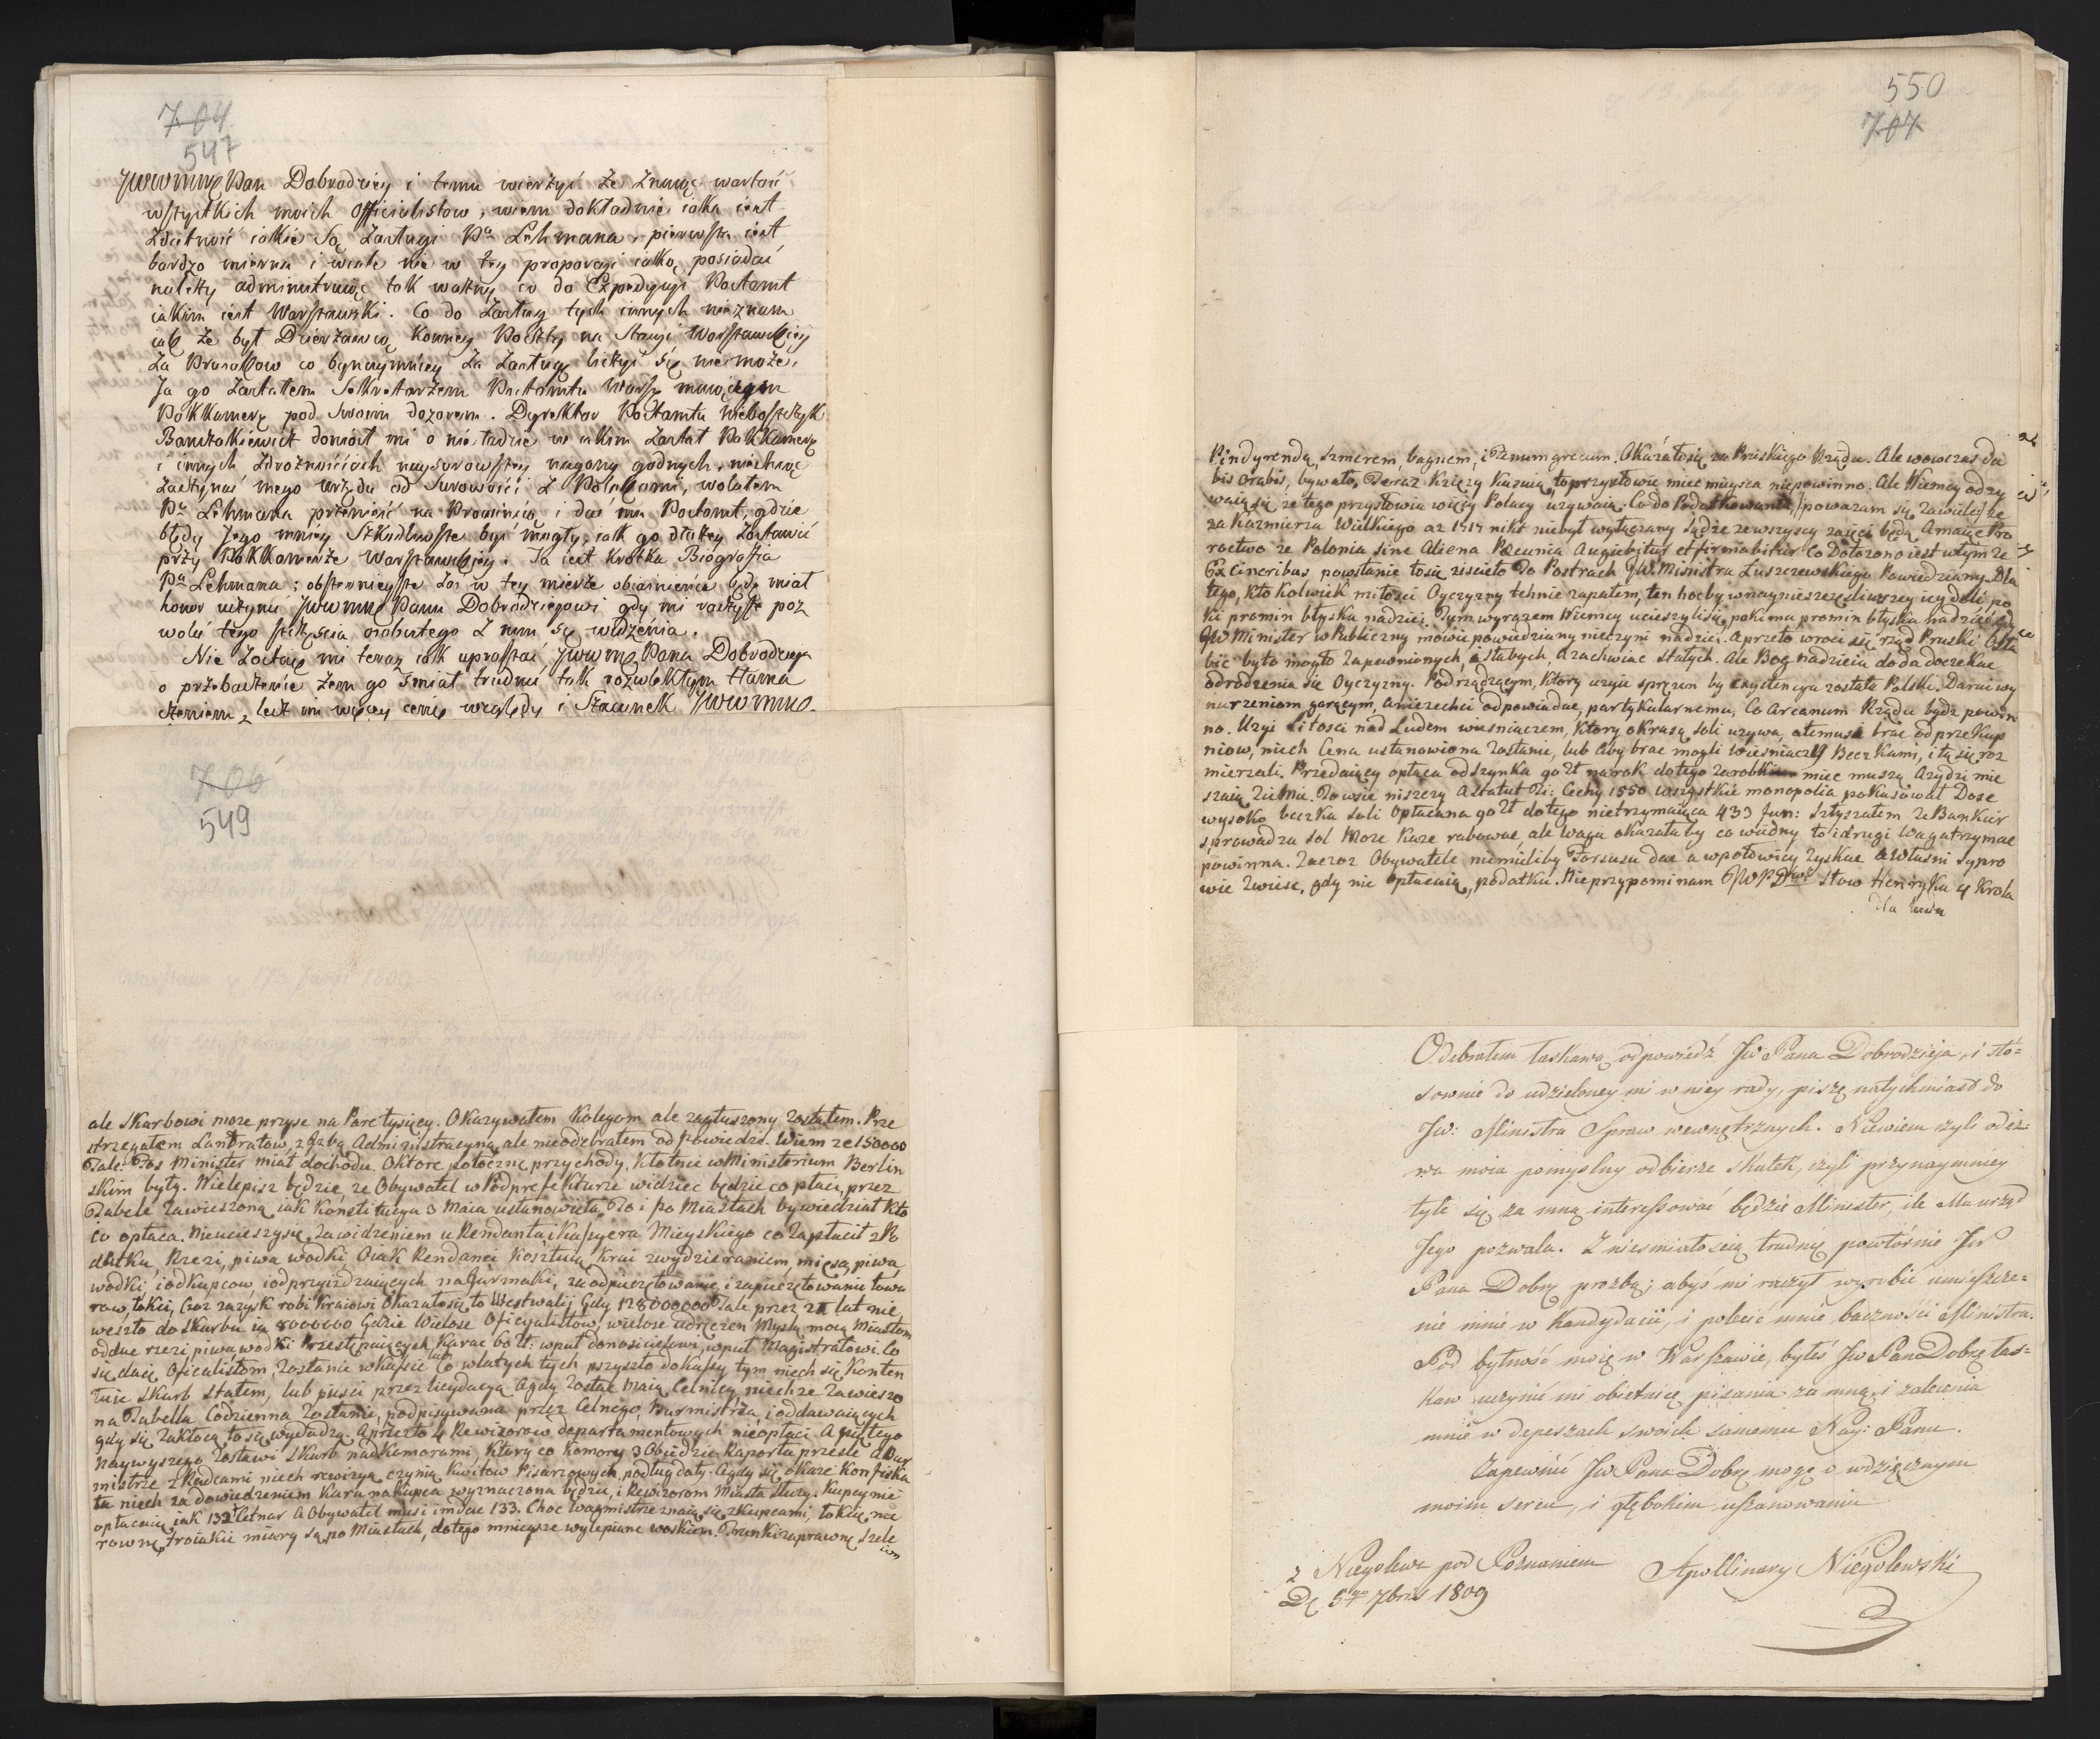 704
547
JWWMMę Pan Dobrodziey i temu wierzyć że znaiąc wartość
wszystkich moich Officialistow, wiem dokładnie iaka iest
zdatność iakie są zasługi Pa Lehmana, pierwsza iest
bardzo mierna i wcale nie w tey proporcyi iaką posiadać
należy administruiąc tak ważny co do Expedycyi Poctamt
iakim iest Warszawski. Co do zasług tych innych nieznam
iak że był Dzierżawcą Konney Poczty na Stacyi Warszawskiey
za Prusakow co bynaymniey za zasługę liczyć się niemoże,
Ja go zastałem Sekretarzem Poctamtu Warsz: maiącym
Pakkamerę pod swoim dozorem. Dyrektor Poctamtu nieboszczyk
Banczakiewicz doniosł mi o nieładzie w iakim zastał Pakkamerę
i innych zdrożnościach naysurowszey nagany godnych, niechcąc
zaczynać mego urzędu od surowości z Polakami, wolałem
Pa Lehmana przenieść na Prowincią i dać mu Poctamt, gdzie
błędy Jego mniey szkodliwsze być mogły, iak go dłużey zostawić
przy Pakkamerze Warszawskiey. Ta iest krotka Biografia
Pa Lehmana; obszernieysze zaś w tey mierze obiaśnienia będę miał
honor uczynić JWWMMę Panu Dobrodziejowi gdy mi raczysz poz
wolić tego szczęścia osobistego z nim się widzenia.
Nie zostaie mi teraz iak upraszać JWWMMę Pana Dobrodzieja
o przebaczenie żem go śmiał trudnić tak rozwlekłym tłama
czeniem, lecz im więcey cenię względy i szacunek JWWMMo
706
549
ale Skarbowi moze przyse na Pare tysięcy. Okazywałem Kolegom ale zagłuszony zostałem. Prze
strzegałem Landratow, z Izbą Administracyiną, ale nieodebrałem odpowiedzi. Wiem ze 150000
Tale: Pos Minister miał dochodu. Oktore poboczne przychody, Kłotnie w Ministerium Berlin
skim były. Wielepisz będzie, ze Obywatel w Podprefekturze widziec będzie co płaci, przez
Tabele zawieszoną iak Konstitucya 3 Maia ustanowiła. To i po Miastach by wiedział kto
co opłaca. Nieucieszy się, zawidzeniem u Rendanta i Kassyera Mieyskiego co zapłacił z Po
datku, Rzezi, piwa wodki, Osiak Rendanci kosztuią Krai zwydzieraniem, mięsa, piwa
wodki, i odkupcow iodprzyiezdzaiących na Jarmaki, za odpieczętowanie, i zapieczętowanie towa
row, tokci, Coz zazysk robi Kraiowi Okazałosię to Westwalij Gdy 128000000 Tale przez 2 lat nie
weszło do skarbu ią 8000000 Gdzie Wielosc Oficyalistow, wielosc udręczen Mysłą mocą Miastom
oddac rzezi piwa, wodki Przestępuiących, Karac 60 zł: w puł donosicielowi, w puł Magistratowi. Co
się daią Oficialistom, zostanie w kassie Co w latych tych przyszło do Kassy tym niech się Konten
tuie Skarb Stałem, lub puści przez licydacyą Agdy zostac maią Celnicy niechze zawieszo
na Tabella Codzienna zostanie, podpisywana przez Celnego, Burmistrza, i oddawaiących
gdy się zakłocą to się wydadzą. A przez to 4 Rewizorow departamentowych nieopłaci A piątego
naywyszego zostawi Skarb nad Kamorami, Ktory co Komory 3 Obiedzie Raporta przesle a Bur
mistrze z Radcami niech rewizyą czynią Kwitow Pisarzowych, podług daty. Agdy się okaze Konfiska
ta niech za dowiedzeniem Kara na kupca wyznaczona będzie, i Rewizorom Miasta służy. Kupcy nie
opłacaią iak 132 Cetnar A Obywatel musi im dac 133. Choc wagmistrze znaią się z kupcami, tokcią nie
rowne, troiakie miary są po Miastach, dotego mnieysze wylepiane woskiem. Trunki zaprawne Szele
iem
550
707
Pindyrendą, Szmerem, bagnem, i Fenumgrecum. Okazałosię za Pruskiego Rządu. Ale wowczas da
bis orabis, bywało, Teraz Księży Kazuią, to przysłowie miec mieysca niepowinno. Ale Niemcy odzy
waią się ze tego przysłowia więcy Polacy uzywaią. Co do Podatkowania, /:powazam się zawiele:/ ze
za Kazmierza Wielkiego az 1717 nikt niebył wyłączany Sądze zewszyscy zaięci będą. A maiąc Pro
roctwo ze Polonia Sine Aliena Pecunia Augiebitur et firmabitur Co Dotozono iest w tym ze
Ex cineribus powstanie to się zisciło Do Postrach JW. Ministra Łuszczewskiego Powiedziany. Dla
tego, Kto kolwiek miłosci Oyczyzny tchnie zapałem, ten hocby w naynieszczęsliwszey icy doli po
ki promin błyska nadziei. Tym wyrazem Niemcy ucieszyli się, poki ma promin błyska nadziei gdy
JW Minister w Publiczny mowie powiedziany nieczyni nadziei. A przeto wroci się rząd Pruski Osła
bic było mogło Zapewnionych, i Słabych, A zachwiac Stałych. Ale Bog nadzieią doda doczekac
odrodzenia się Oyczyzny. Pod rządzącym, Ktory uzyie spręzen by exystencya została Polski. Daruie wy
nurzeniom gorącym, A niezechce odpowiadac, partykularnemu, Co Arcanum Rządu bydz powin
no. Uzyi Litosci nad Ludem wiesniaczem, Ktory okrasą soli uzywa, ale musi brac od przekup
niow, niech Cena ustanowiona zostanie, lub aby brac mogli Wiesniaczy Beczkami, i tą się roz
mierzali. Przedaiący opłaca od Szynku 90 zł na rok do tego zarobku miec muszą A Zydzi mie
szaią Ziemie. To wsie niszczy A statut Zi: Cechy 1550 wszystkie monopolia pokasował Dose
wysoko beczka soli opłacana 90 zł do tego nietrzymaiąca 433 fun: Sztyszałem ze Bankier
sprowadza sol Moze kaze rabowac, ale waga okazałaby co wiedny to i drugi waga trzymac
powinna. Zaczoz Obywatele niemieliby Forszusu dac a w połowicy Zyskac a Własni sypro
wie zwiesc, gdy nie opłacaią, podatku. Nieprzypominam JWPDwi Stow Henryka 4 Krola
dla ludu
Odebrałem łaskawą odpowiedź JW Pana Dobrodzieja, i sto=
sownie do udzieloney mi w niey rady, piszę natychmiast do
JW: Ministra Spraw wewnętrznych. Niewiem czyli odez=
wa moia pomyślny odbierze skutek, czyli przynaymniey
tyle się za mną interessować będzie Minister, ile Mu urząd
Jego pozwala. Z nieśmiałością trudnię powtórnie JW
Pana Dobrę prozbą; abyś mi raczył wyrobić umieszcze=
nie mnie w Kandydacii, i polecić mnie baczności Ministra.
Pod bytność moię w Warszawie, byłeś JW Pan Dobrę łas=
kaw uczynić mi obietnicę pisania za mną i zalecenia
mnie w depeszach swoich samemu Nay: Panu.
Zapewnić JW Pana Dobrę mogę o wdzięcznym
moim sercu, i głębokim uszanowaniu
z Niegolewa pod Poznaniem
D: 5go 7bris 1809
Apollinary Niegolewski